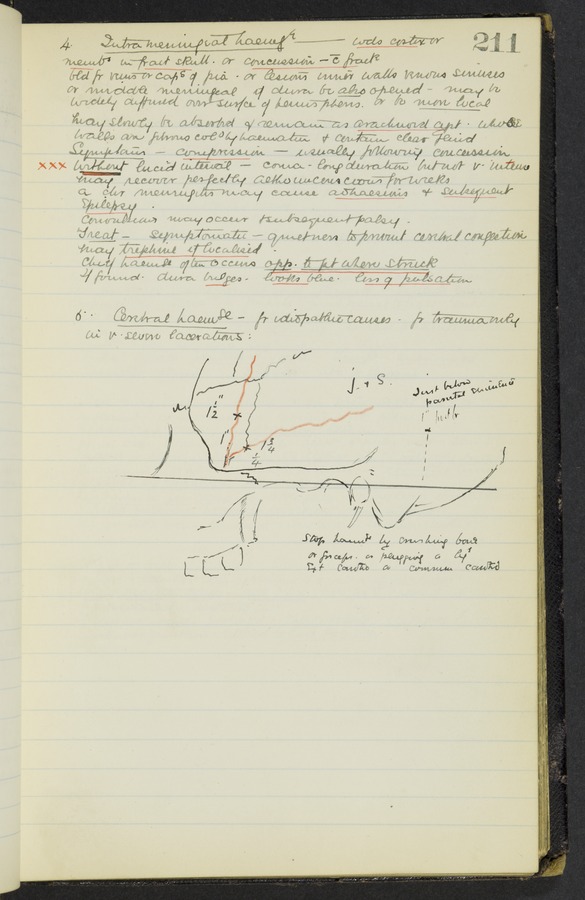 211
4 Intrameningeal haemge — wds cortex or
membs in fract skull. or concussion – c̄ fract
bld fr veins or caps of pia. or lesions inner walls venous sinuses
or middle meningeal if dura be also opened - may be
widely diffused over surface of hemisphere. or be more local
may slowly be absorbed or remain as arachnoid cyst. whose
walls are fibrous cold by haematin & contain clear fluid
Symptoms — compression — usually following concussion
xxx Without lucid interval — coma. long duration but not v. intense
may recover perfectly altho unconscious for weeks
a chr meningitis may cause adhaesions & subsequent
Epilepsy.
Convulsions may occur & subsequent palsy.
Treat – symptomatic – quietness to prevent cerebral congestion
may trephine if localised
Chief haemge often occurs opp. to pt where struck
If found. dura bulges. looks blue. less g pulsation
5. Cerebral haemge – fr idiopathic causes. fr trauma only
in v. severe lacerations:
j. + S.
Just below
parietal eminence
1½"
1"
1¾
¼
Stop haemge by crushing bone
or forceps. or plugging or ligt
Ext carotid or common carotid